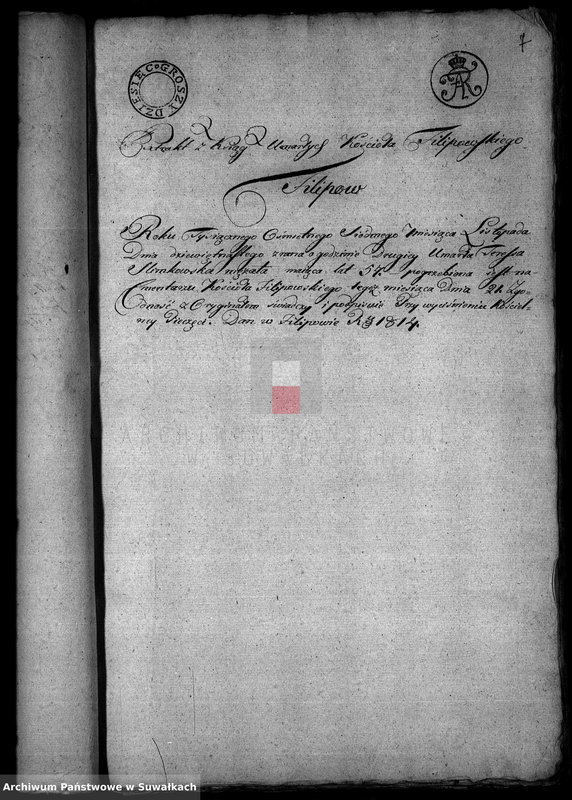 7
DZIESIĘC GROSZY
Extrakt z Xiąg Umarłych Kościoła Filipowskiego
Filipow
Roku Tysiącznego Osmsetnego Siodmego miesiąca Listopada
Dnia dziewiętnastego zrana o godzinie Drugiey Umarła Teressa
męzata maiąca lat 57. pogrzebiona jest na
Cmentarzu Kościoła Filipowskiego tegoż miesiąca Dnia 21. Zgo-
dność z Oryginałem świadczę i podpisuię Przy wyciśnieniu Kościel-
ney Pieczęci. Dan w Filipowie R 1814.
Archiwum Państwowe w Suwałkach